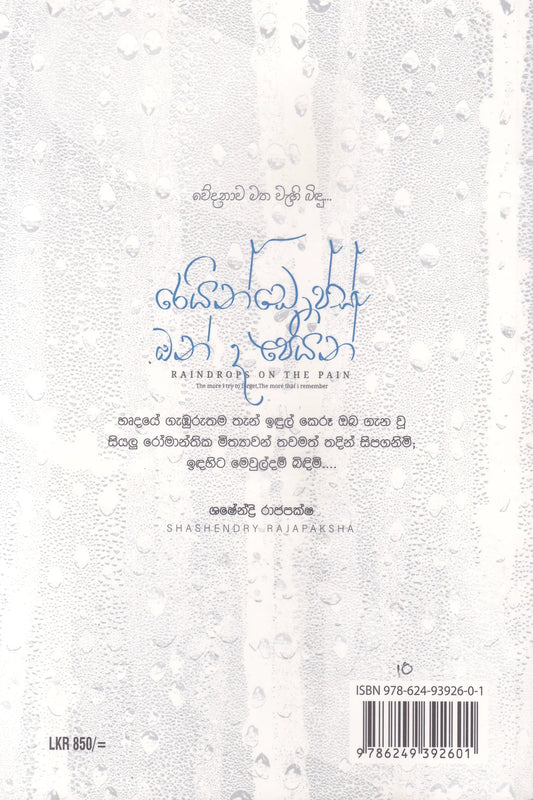 වේදනාව මත වැහි බිඳු...
රේයින්ඩ්‍රොප්ස්
ඔන් ද පේයින්
RAINDROPS ON THE PAIN
The more I try to forget,The more that i remember
හෘදයේ ගැඹුරුතම තැන් ඉඳුල් කෙරූ ඔබ ගැන වූ
සියලු රෝමාන්තික මිත්‍යාවන් තවමත් තදින් සිපගනිමි;
ඉඳහිට මෙවුල්දම් බිඳිමි....
ශෂේන්ද්‍රි රාජපක්ෂ
SHASHENDRY RAJAPAKSHA
ISBN 978-624-93926-0-1
LKR 850/=
9 786249 392601